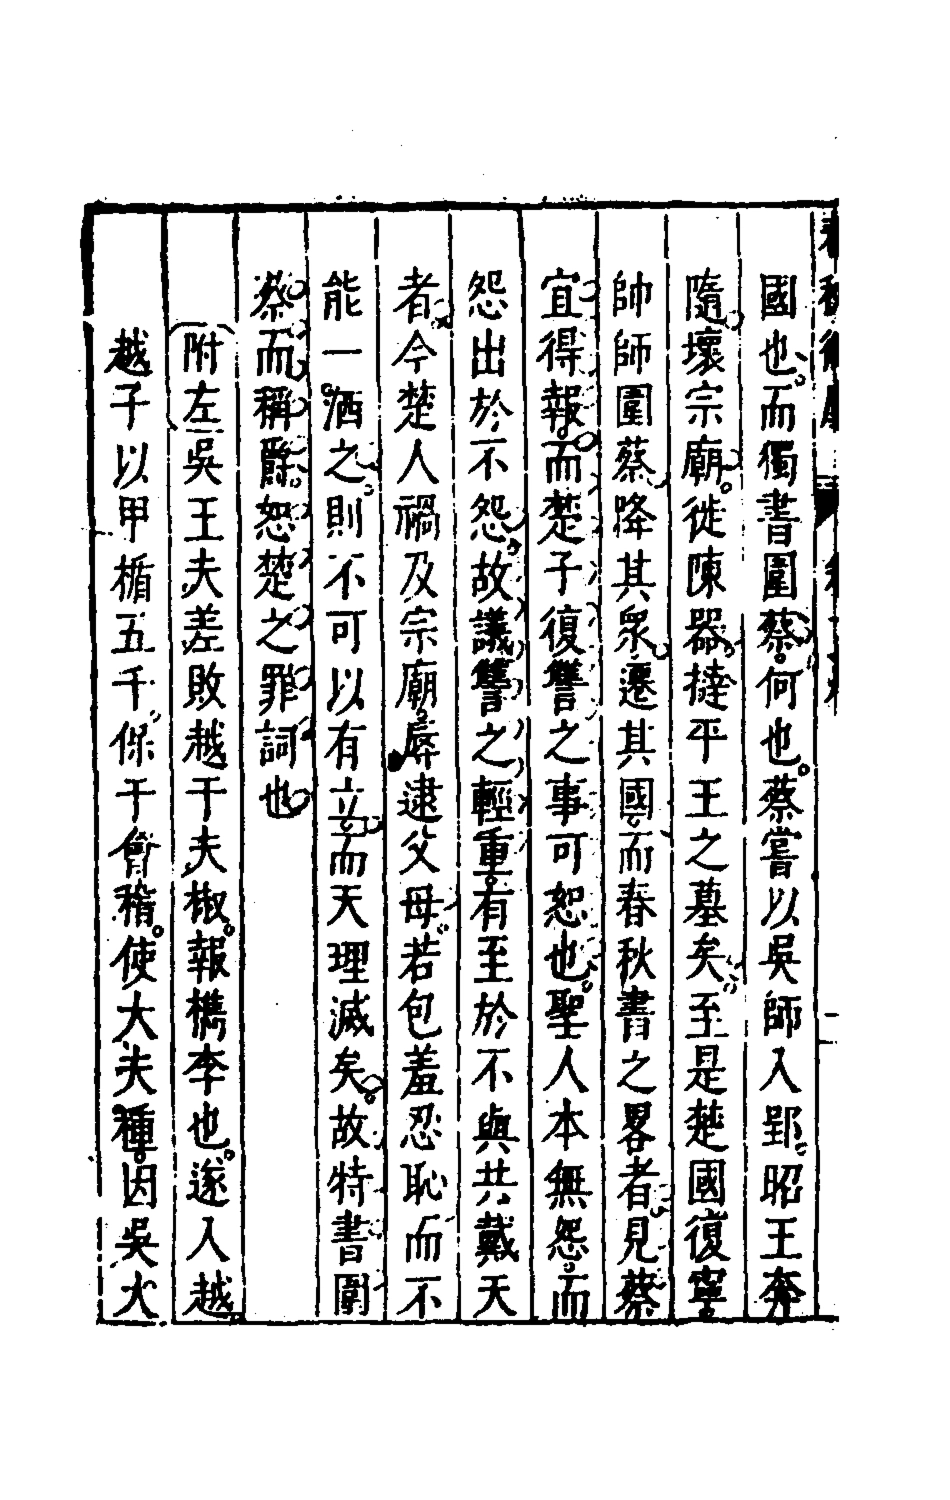 國也而獨書圍蔡何也蔡嘗以吳師入郢昭王奔
隨壞宗廟徙陳器撻平王之墓矣至是楚國復寧
帥師圍蔡降其眾遷其國而春秋書之畧者見蔡
宜得報而楚子復讐之事可恕也聖人本無怨而
怨出於不怨故議讐之輕重有至於不與共戴天
者今楚人禍及宗廟辱逮父母若包羞忍恥而不
能一洒之則不可以有立而天理滅矣故特書圍
蔡而稱爵恕楚之罪詞也
附左吳王夫差敗越于夫椒報檇李也遂入越
越子以甲楯五千保于會稽使大夫種因吳大